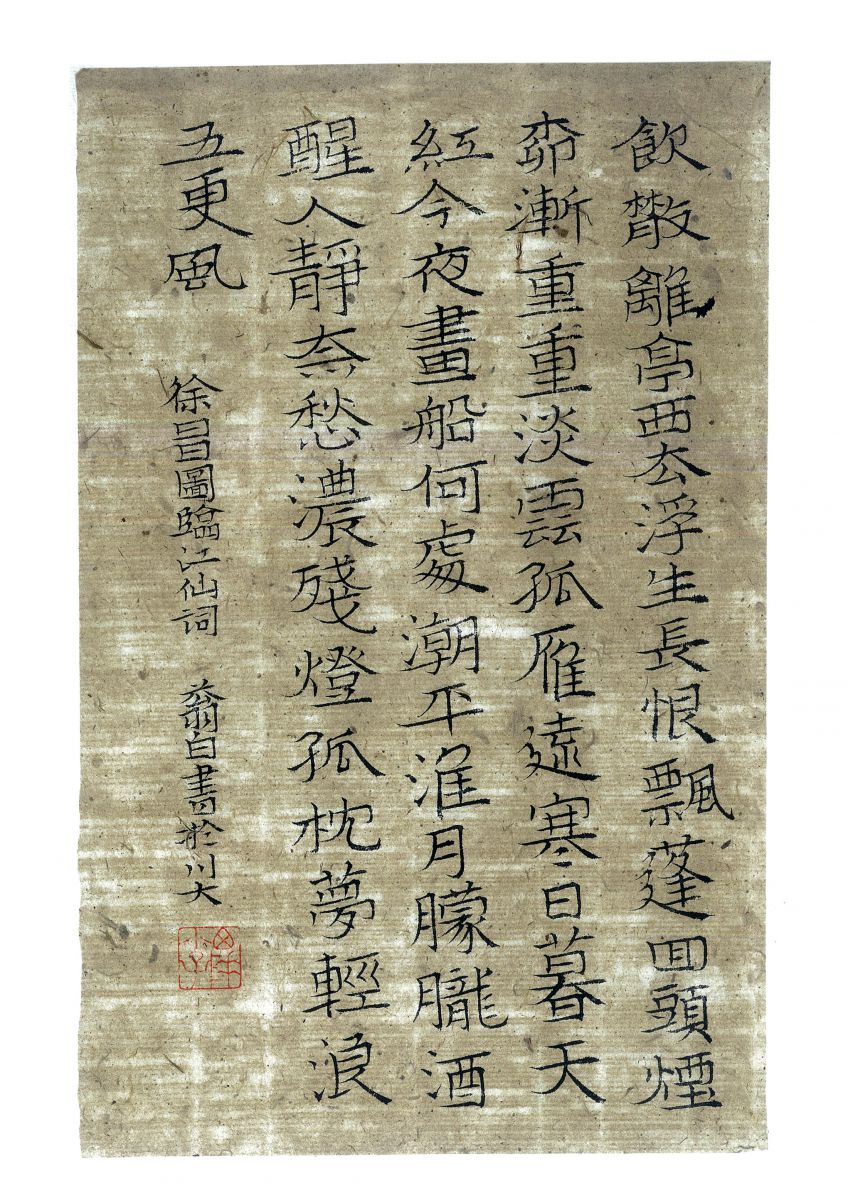 飲散離亭西去浮生長恨飄蓬回頭煙
柳漸重重淡雲孤雁遠寒日暮天
紅今夜畫船何處潮平淮月朦朧酒
醒人靜奈愁濃殘燈孤枕夢輕浪
五更風
徐昌圖臨江仙詞 翁白書於川大